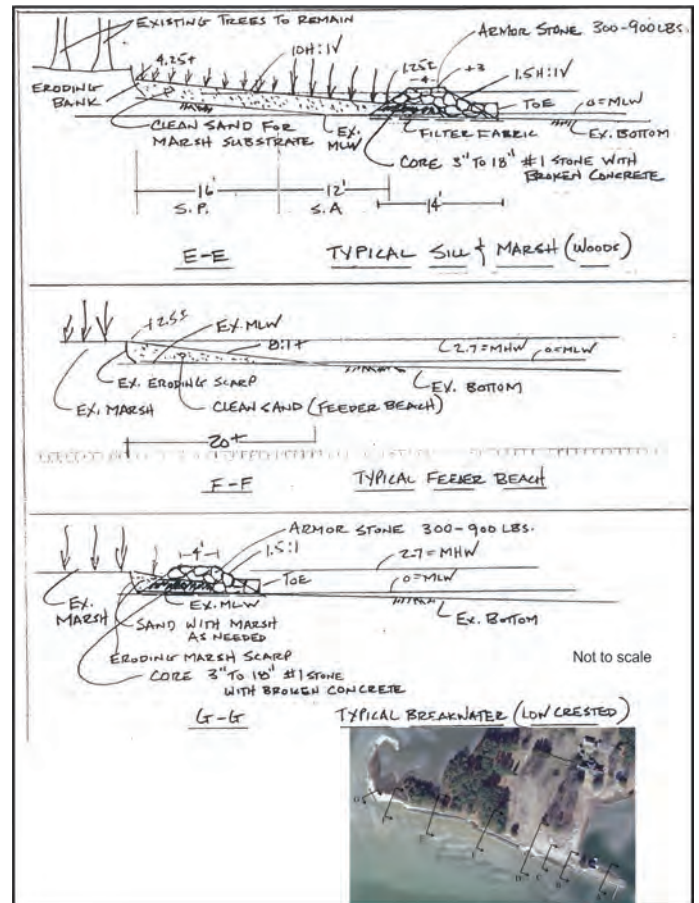 EXISTING TREES TO REMAIN
ARMOR STONE 300-900 LBS.
4.25±
10H:1V
1.25±
4
+3
1.5H:1V
ERODING
BANK
TOE
0=MLW
CLEAN SAND FOR
MARSH SUBSTRATE
EX.
MLW
FILTER FABRIC
EX. BOTTOM
CORE 3" TO 18" #1 STONE WITH
BROKEN CONCRETE
16'
12'
14'
S.P.
S.A
E-E
TYPICAL SILL & MARSH (WOODS)
EX. MLW
2.7=MHW
0=MLW
EX. ERODING SCARP
EX. BOTTOM
EX. MARSH
CLEAN SAND (FEEDER BEACH)
20±
F-F
TYPICAL FEEDER BEACH
ARMOR STONE 300-900 LBS.
4'
1.5:1
2.7=MHW
TOE
0=MLW
EX.
MARSH
EX. MLW
SAND WITH MARSH
AS NEEDED
EX. BOTTOM
ERODING MARSH SCARP
CORE 3" TO 18" #1 STONE
WITH BROKEN CONCRETE
Not to scale
G-G
TYPICAL BREAKWATER (LOW CRESTED)